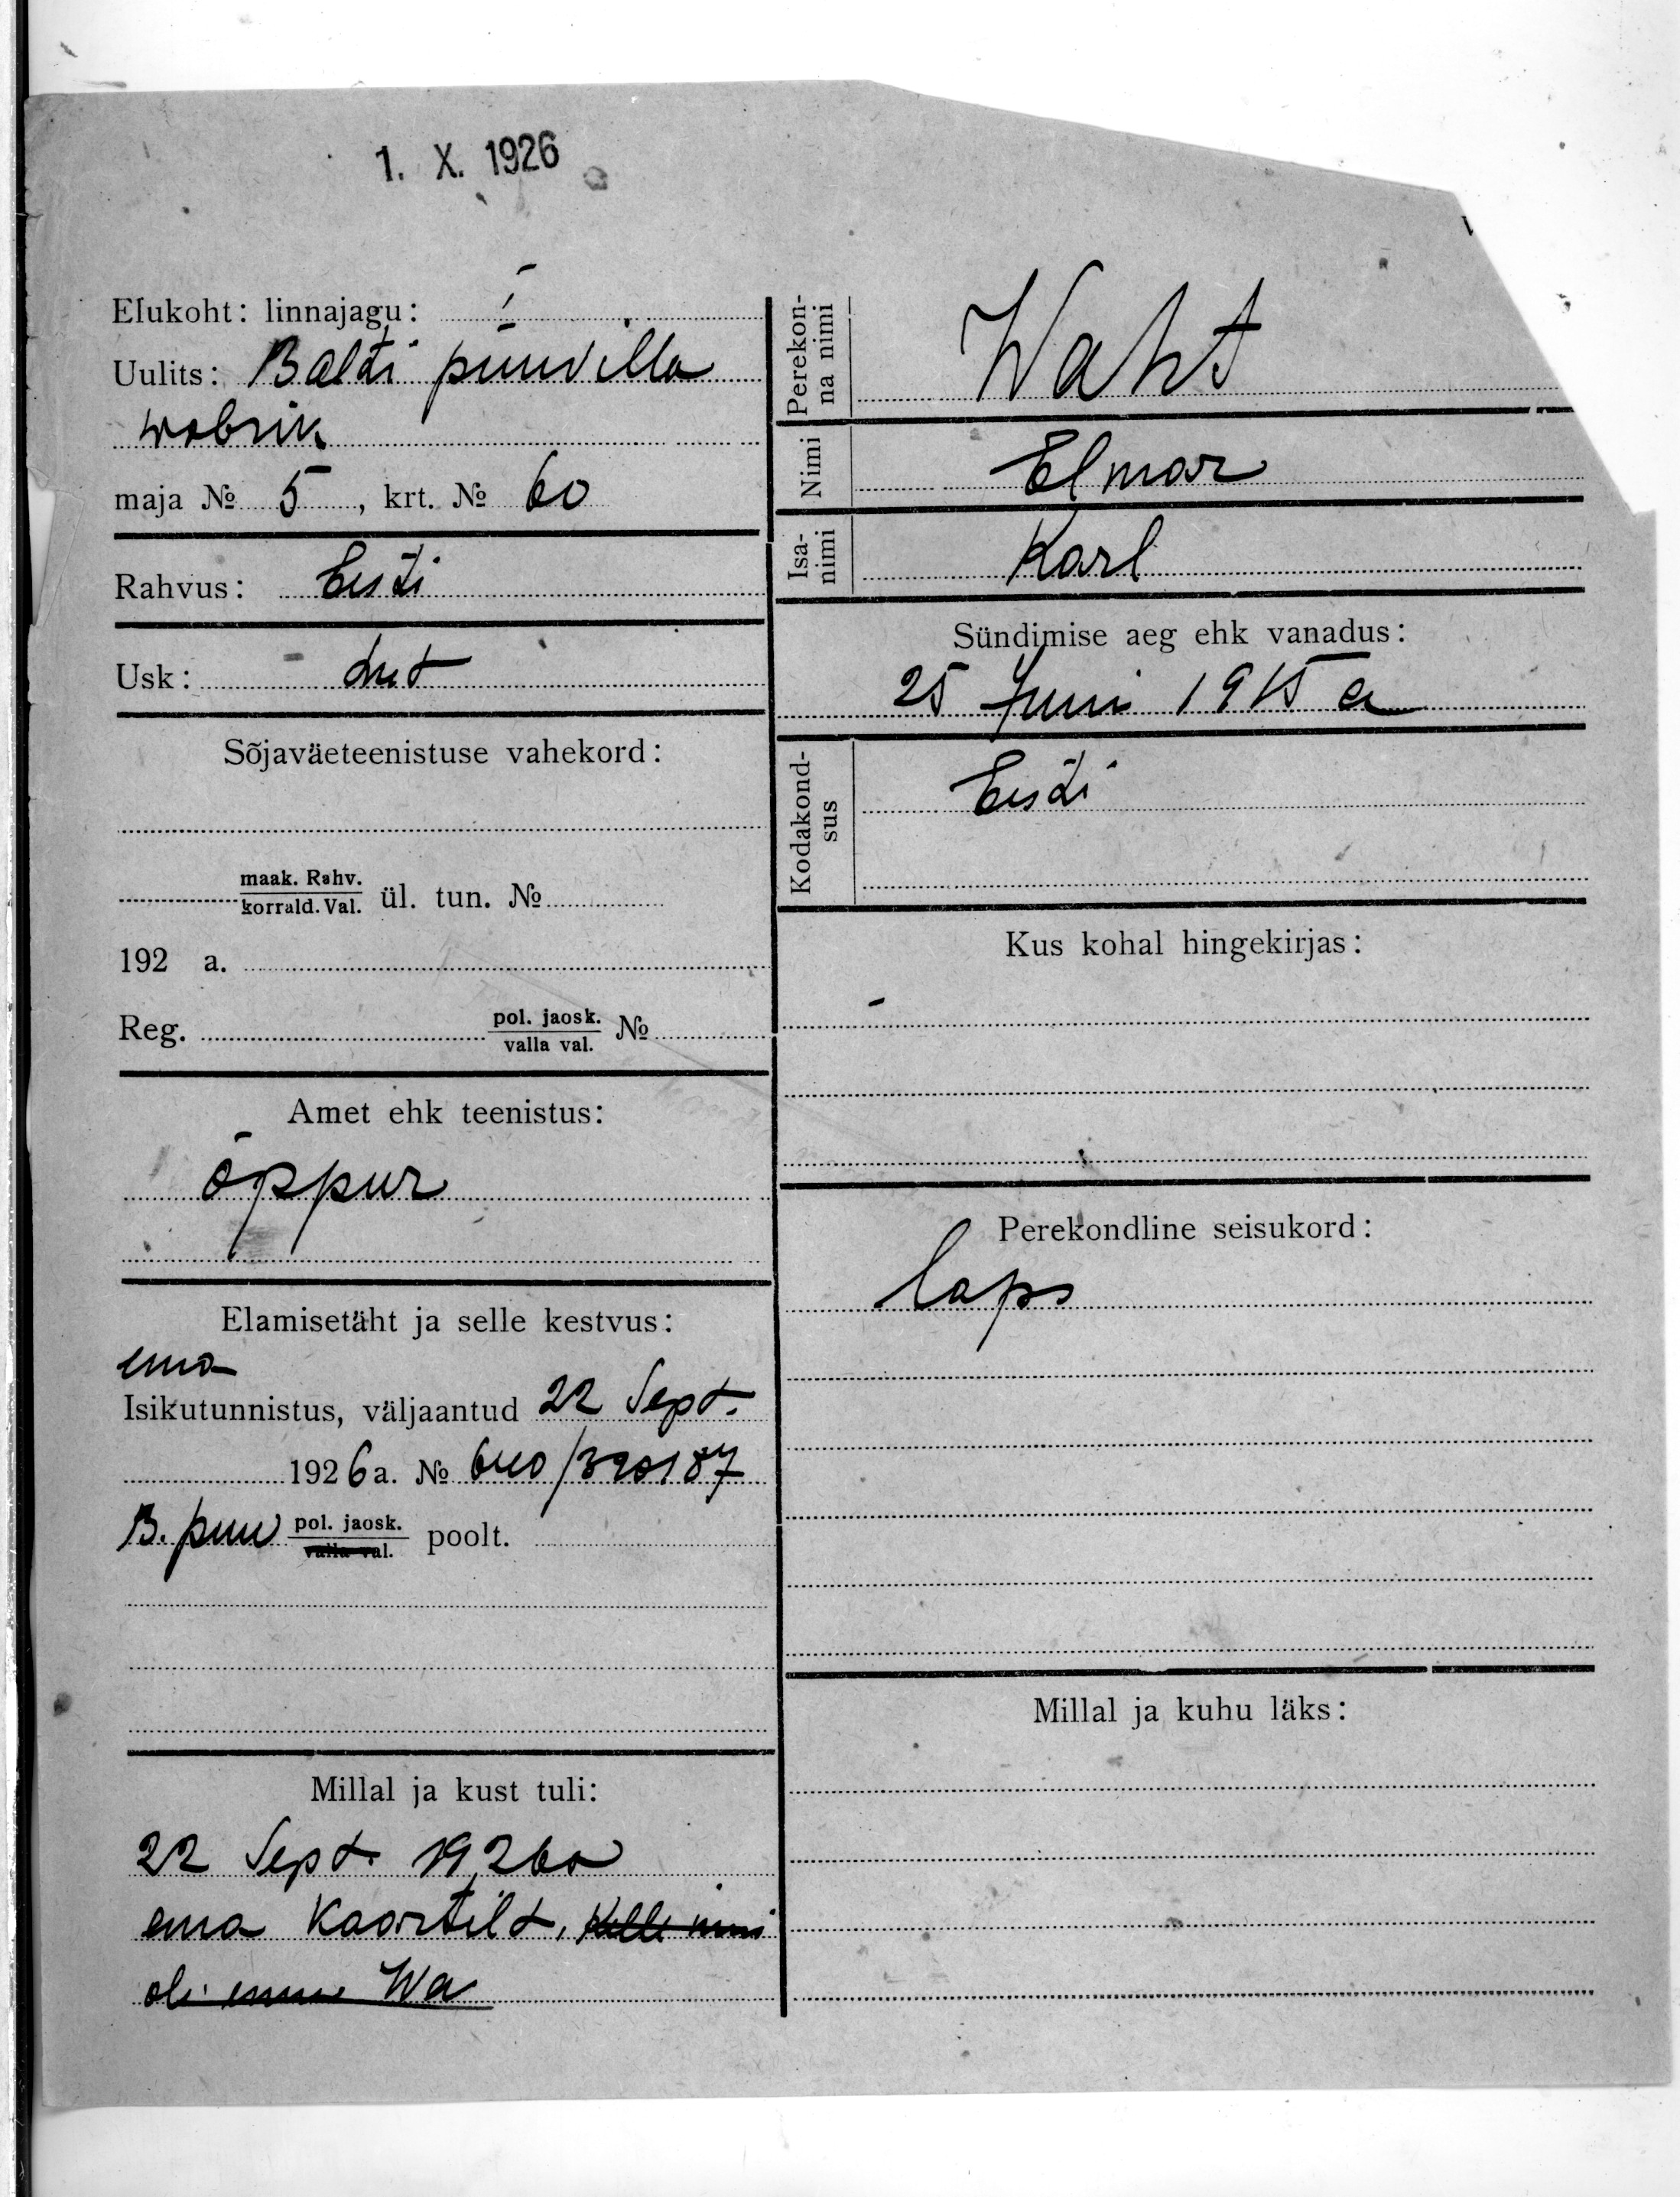 1. X. 1926
Elukoht: linnajagu:
Uulits: Balti puuvilla
wabrik
maja № 5, krt. № 60
Rahvus: Eesti
Usk: Lut
Sõjaväeteenistuse vahekord:
maak. Rahv.
korrald. Val. ül. tun. №
192 a.
Reg. pol. jaosk.
valla val. №
Amet ehk teenistus:
õppur
Elamisetäht ja selle kestvus:
ema
Isikutunnistus, väljaantud 22 Sept.
1926 a. № 640/320187
B. puuv pol. jaosk.
valla val. poolt.
Millal ja kust tuli:
22 Sept. 1926 a
ema kaartilt, kelle nimi
oli enne Wa
Perekon-
na nimi Waht
Nimi Elmar
Isa-
nimi Karl
Sündimise aeg ehk vanadus:
25 Juuni 1915 a
Kodakond-
sus Eesti
Kus kohal hingekirjas:
-
Perekondline seisukord:
laps
Millal ja kuhu läks: